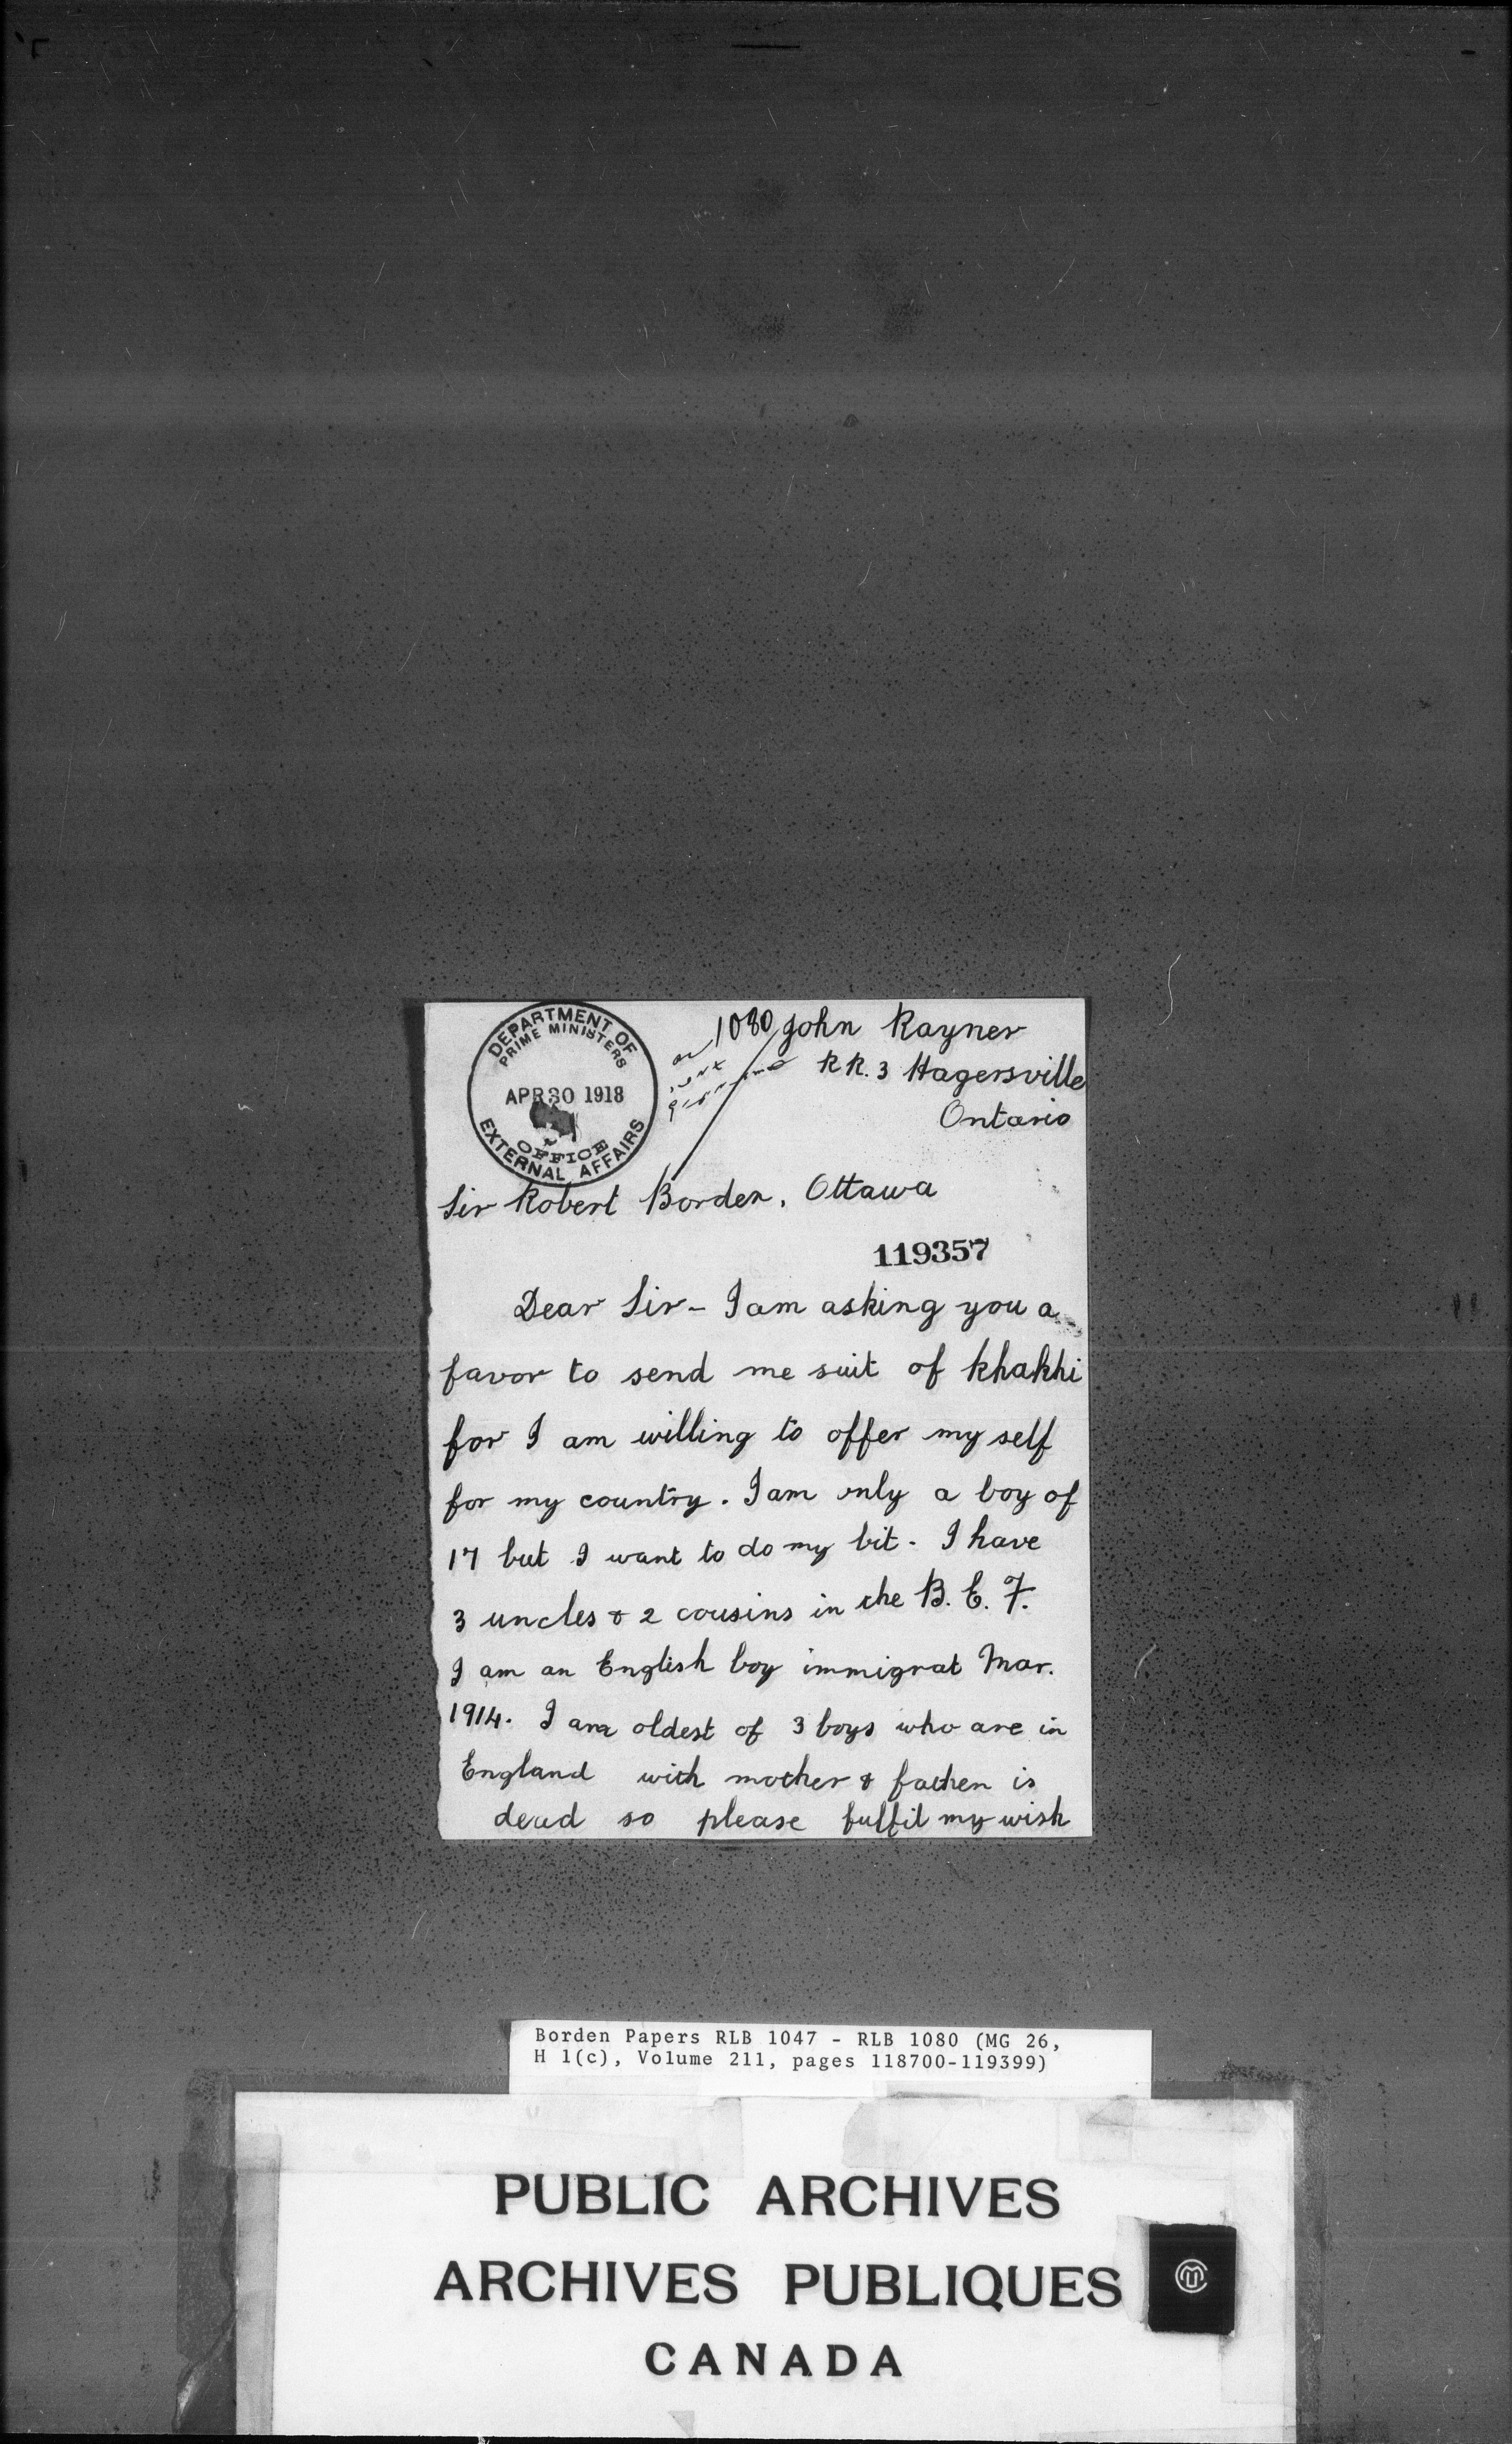 DEPARTMENT OF
PRIME MINISTERS
APR 30 1918
OFFICE
EXTERNAL AFFAIRS
1080
John Rayner
RR. 3 Hagersville
Ontario
Sir Robert Borden, Ottawa
119357
Dear Sir - I am asking you a
favor to send me suit of khakhi
for I am willing to offer my self
for my country. I am only a boy of
17 but I want to do my bit - I have
3 uncles & 2 cousins in the B. E. F.
I am an English boy immigrat Mar.
1914. I am oldest of 3 boys who are in
England with mother & father is
dead so please fulfil my wish
Borden Papers RLB 1047 - RLB 1080 (MG 26,
H 1(c), Volume 211, pages 118700-119399)
PUBLIC ARCHIVES
ARCHIVES PUBLIQUES
CANADA